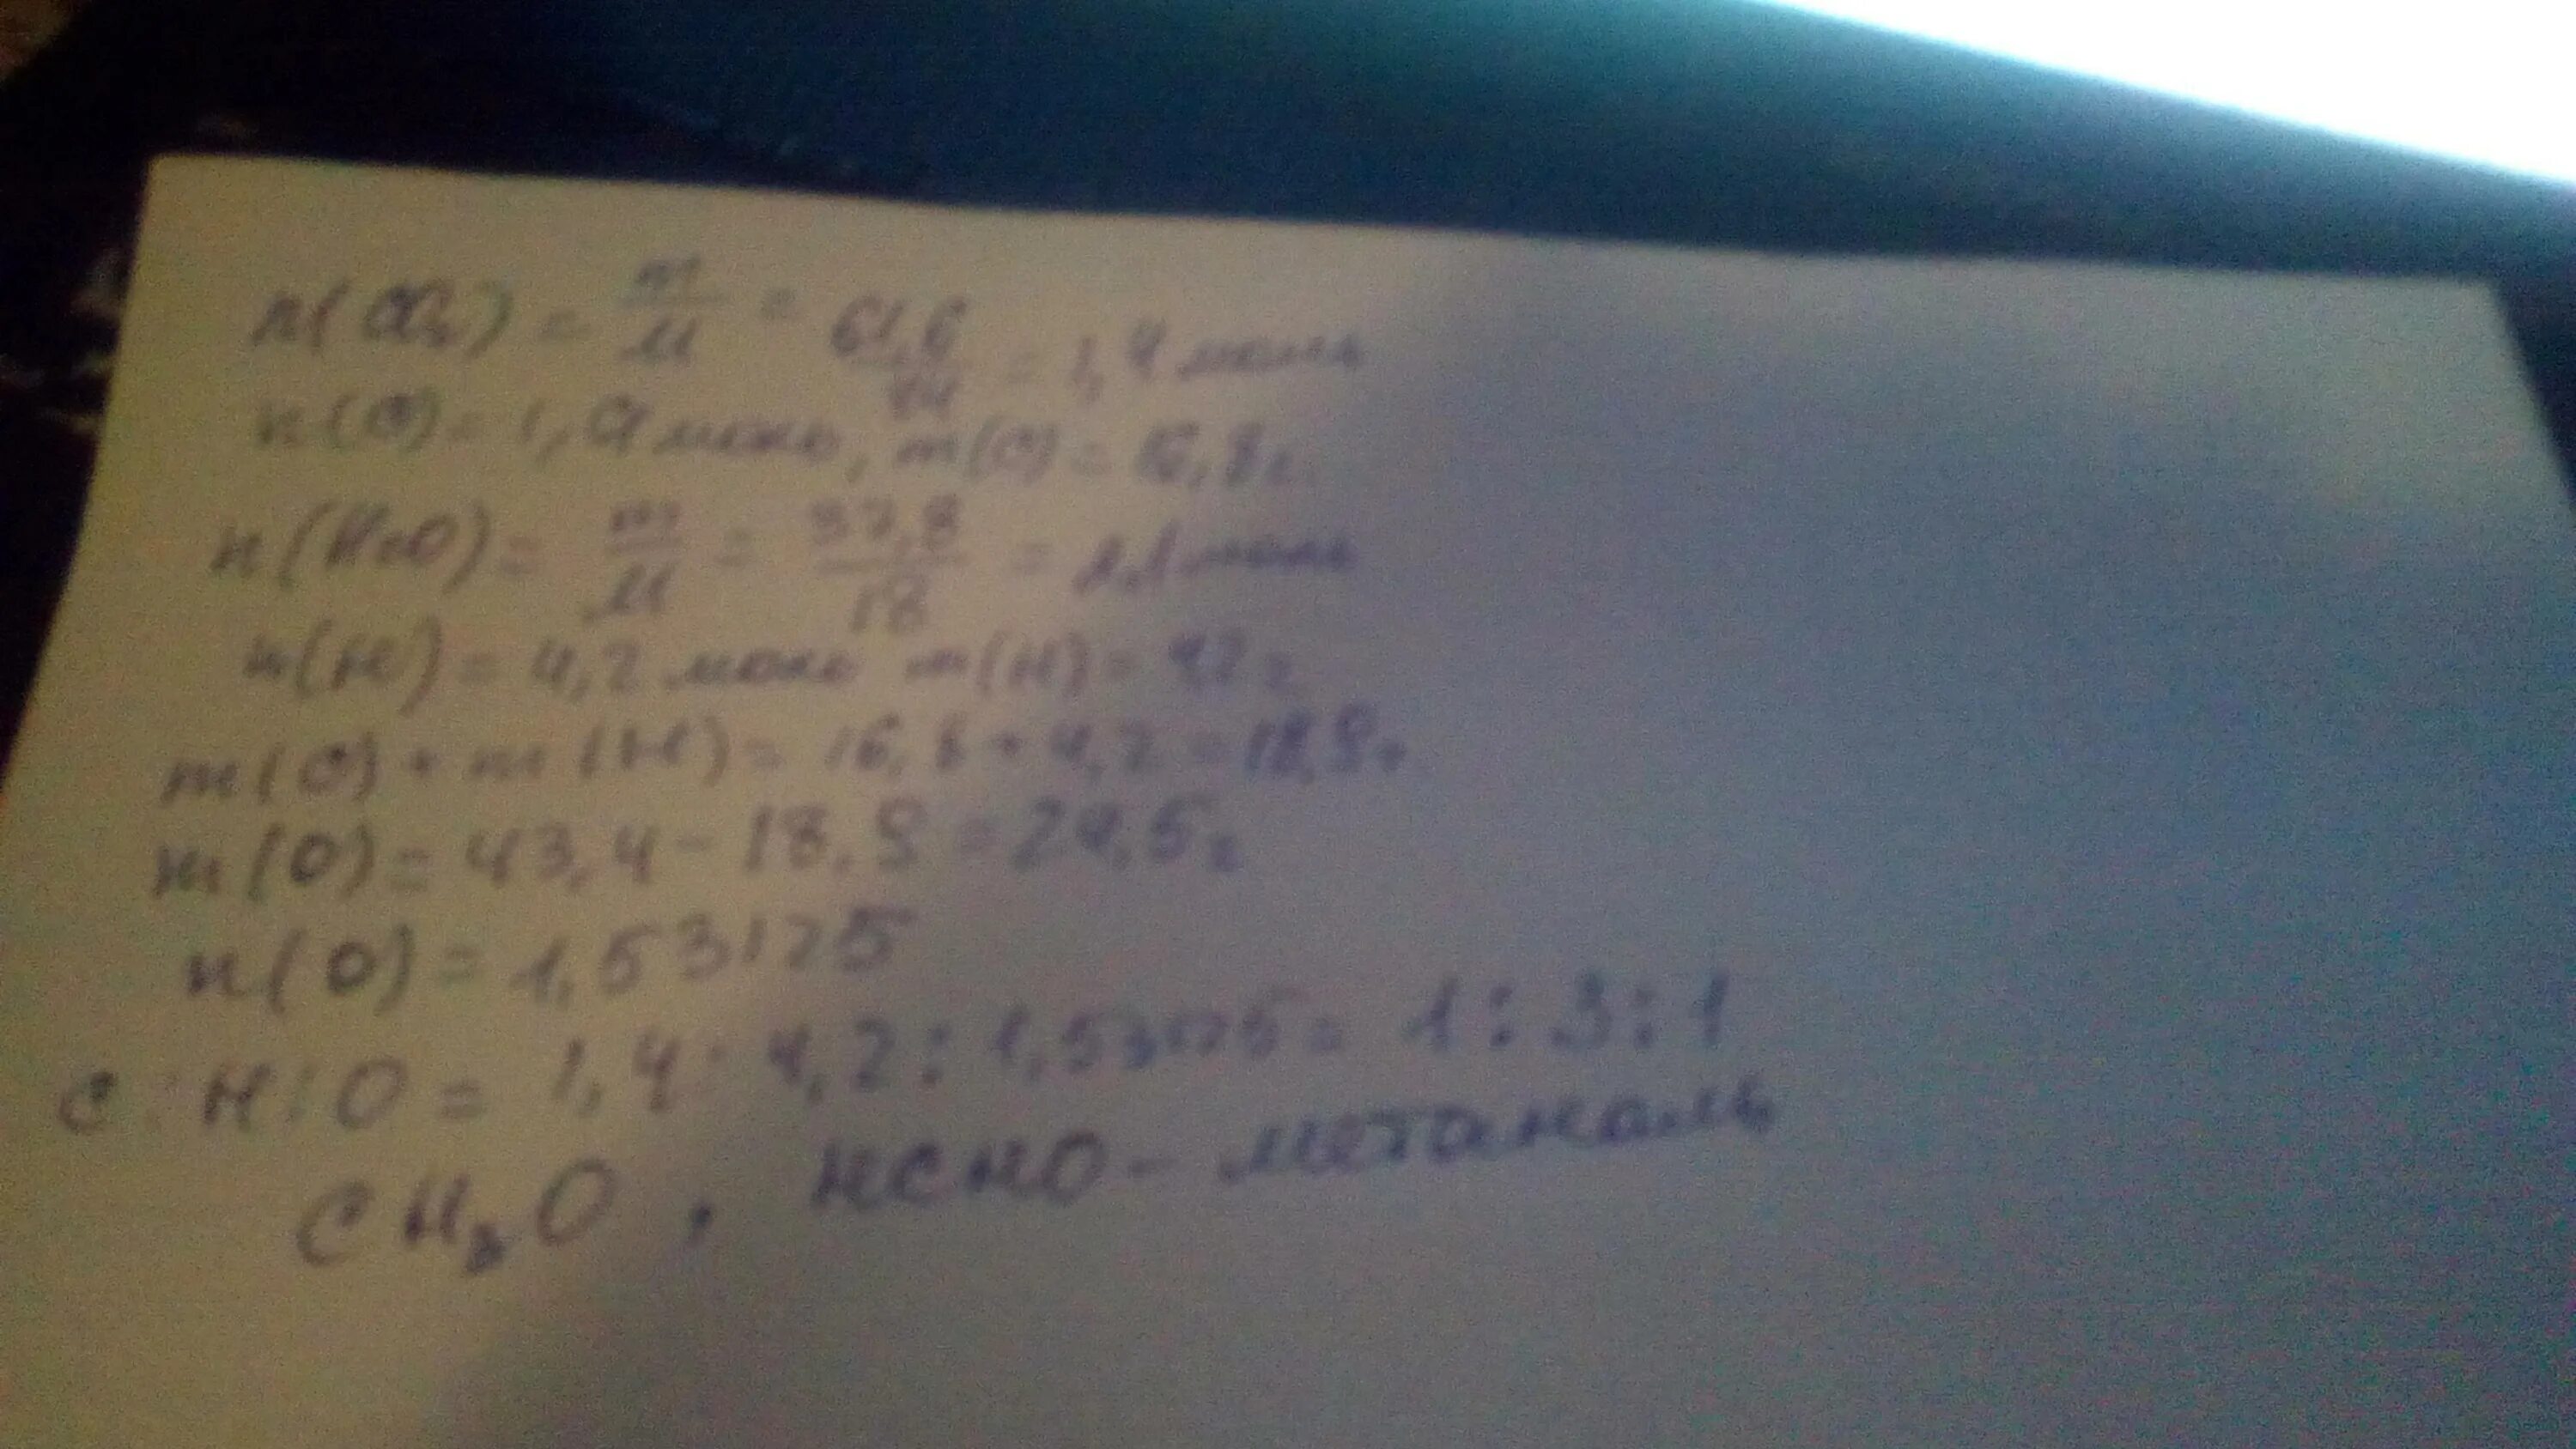 n(CO₂) = m/M = 61,6/44 = 1,4 моль
n(C) = 1,4 моль, m(C) = 16,8 г
n(H₂O) = m/M = 37,8/18 = 2,1 моль
n(H) = 4,2 моль m(H) = 4,2 г
m(C) + m(H) = 16,8 + 4,2 = 18,9 г
m(O) = 43,4 - 18,9 = 24,5 г
n(O) = 1,53125
C : H : O = 1,4 : 4,2 : 1,53125 = 1 : 3 : 1
CH₃O, HCHO - метаналь